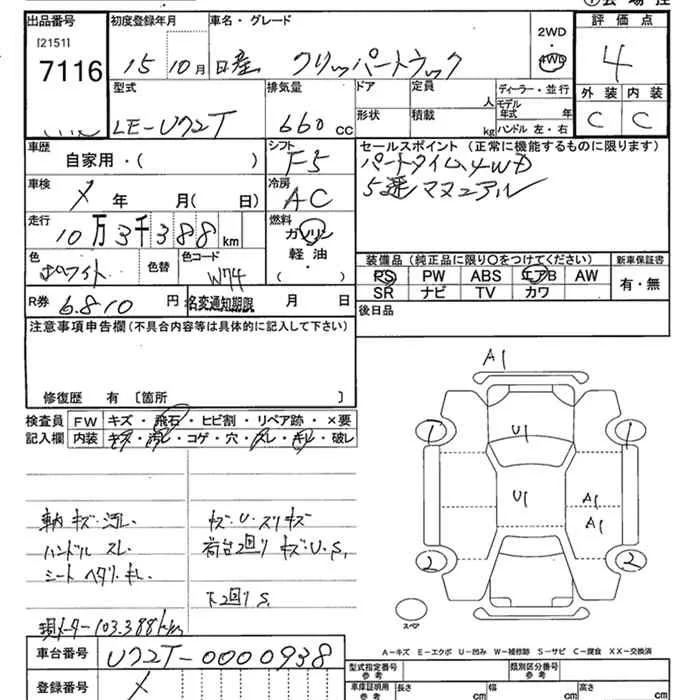 ①会場控
出品番号 初度登録年月 車名・グレード 2WD・4WD 評価点
[2151] 7116 15 10月 日産 クリッパートラック 4
型式 排気量 ドア 定員 人 ディーラー・並行 外装 内装
LE-U72T 660 cc 形状 積載 kg モデル年式 年 ハンドル 左・右 C C
車歴 シフト セールスポイント (正常に機能するものに限ります)
自家用・( ) F5 パートタイム4WD
車検 冷房 5速マニュアル
X 年 月( 日) AC
走行 燃料
10万3千388km ガソリン
色 色替 色コード 軽油 装備品 (純正品に限り○をつけてください) 新車保証書
ホワイト W74 ( ・ ) PS PW ABS エアB AW 有・無
SR ナビ TV カワ
R券 6.810 円 名変通知期限 月 日 後日品
注意事項申告欄 (不具合内容等は具体的に記入して下さい)
修復歴 有 〔箇所 〕
検査員 FW キズ・飛石・ヒビ割・リペア跡・×要
記入欄 内装 キズ・汚レ・コゲ・穴・スレ・キレ・破レ
A1
U1
1 1
U1 A1
A1
2 2
車内 キズ・汚レ. キズ・U・スリキズ
ハンドル スレ. 荷台2回り キズ・U・S.
シート ヘタリ・キレ.
下2回り S.
現メーター103.388km
スペア
A-キズ E-エクボ U-凹み W-補修跡 S-サビ C-腐食 XX-交換済
車台番号 U72T-0000938
登録番号 X
型式指定番号 参考 類別区分番号 参考
車庫証明用 参考 長さ cm 幅 cm 高さ cm